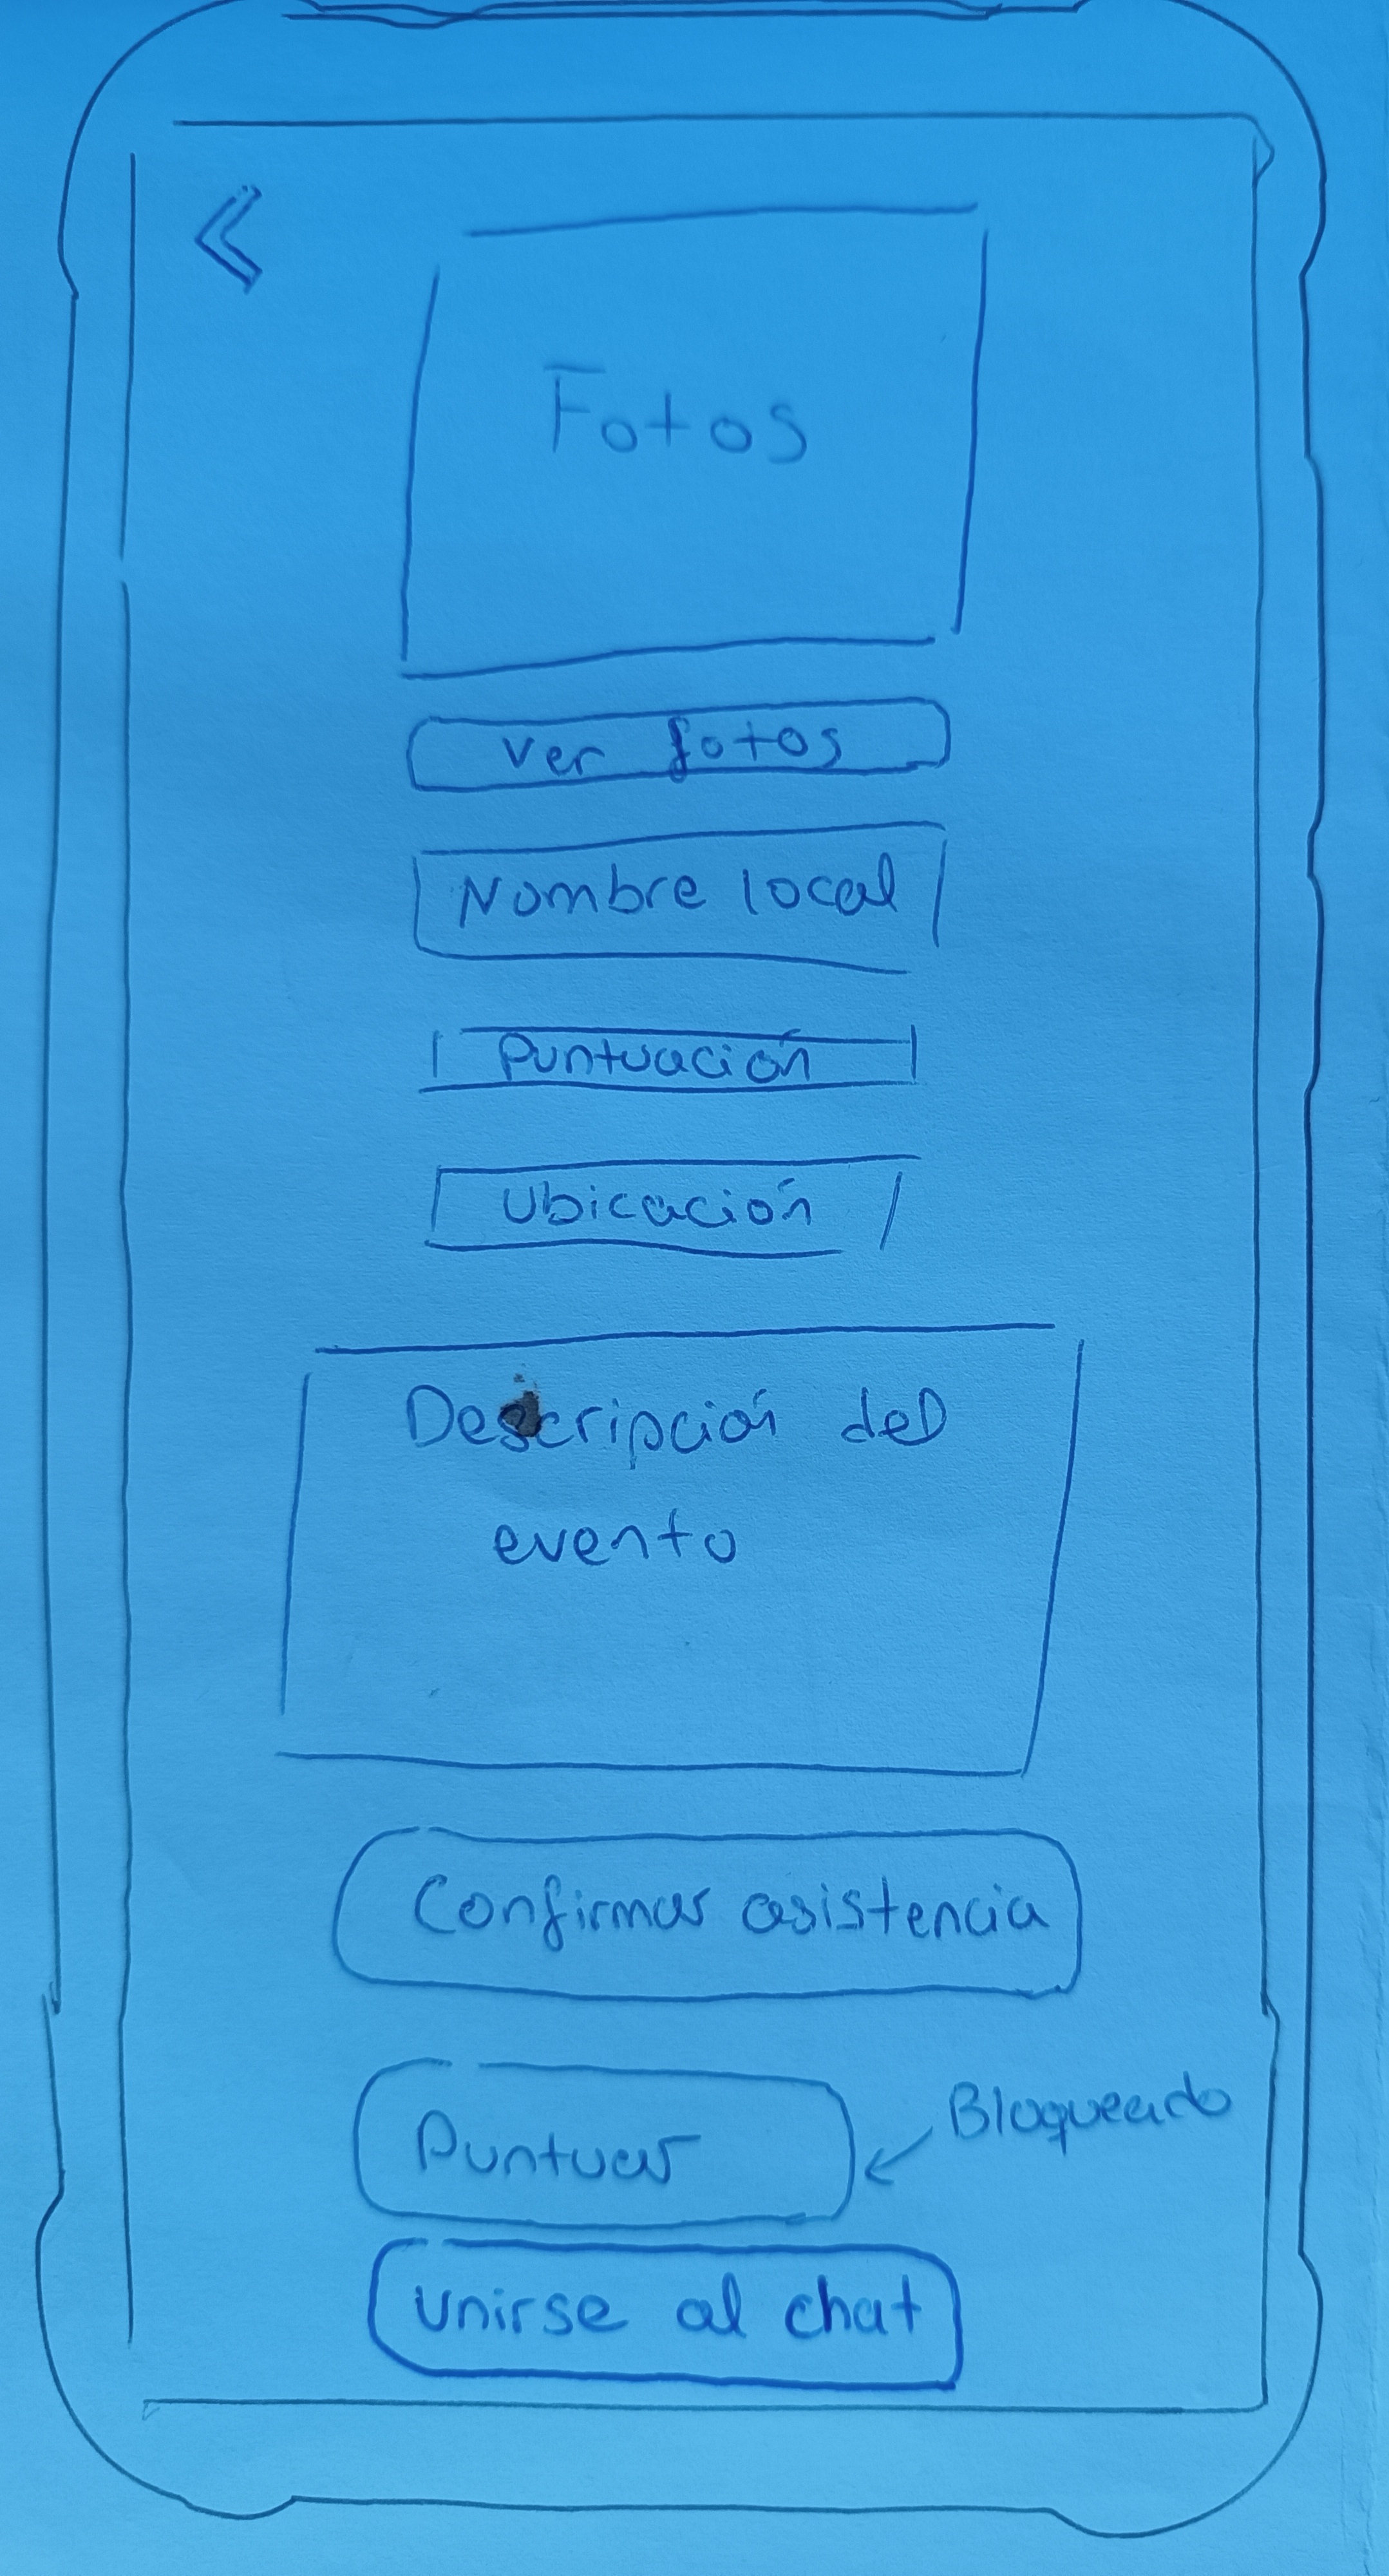 Fotos
Ver fotos
Nombre local
Puntuación
Ubicación
Descripción del
evento
Confirmar asistencia
Bloqueado
Puntuar
Unirse al chat